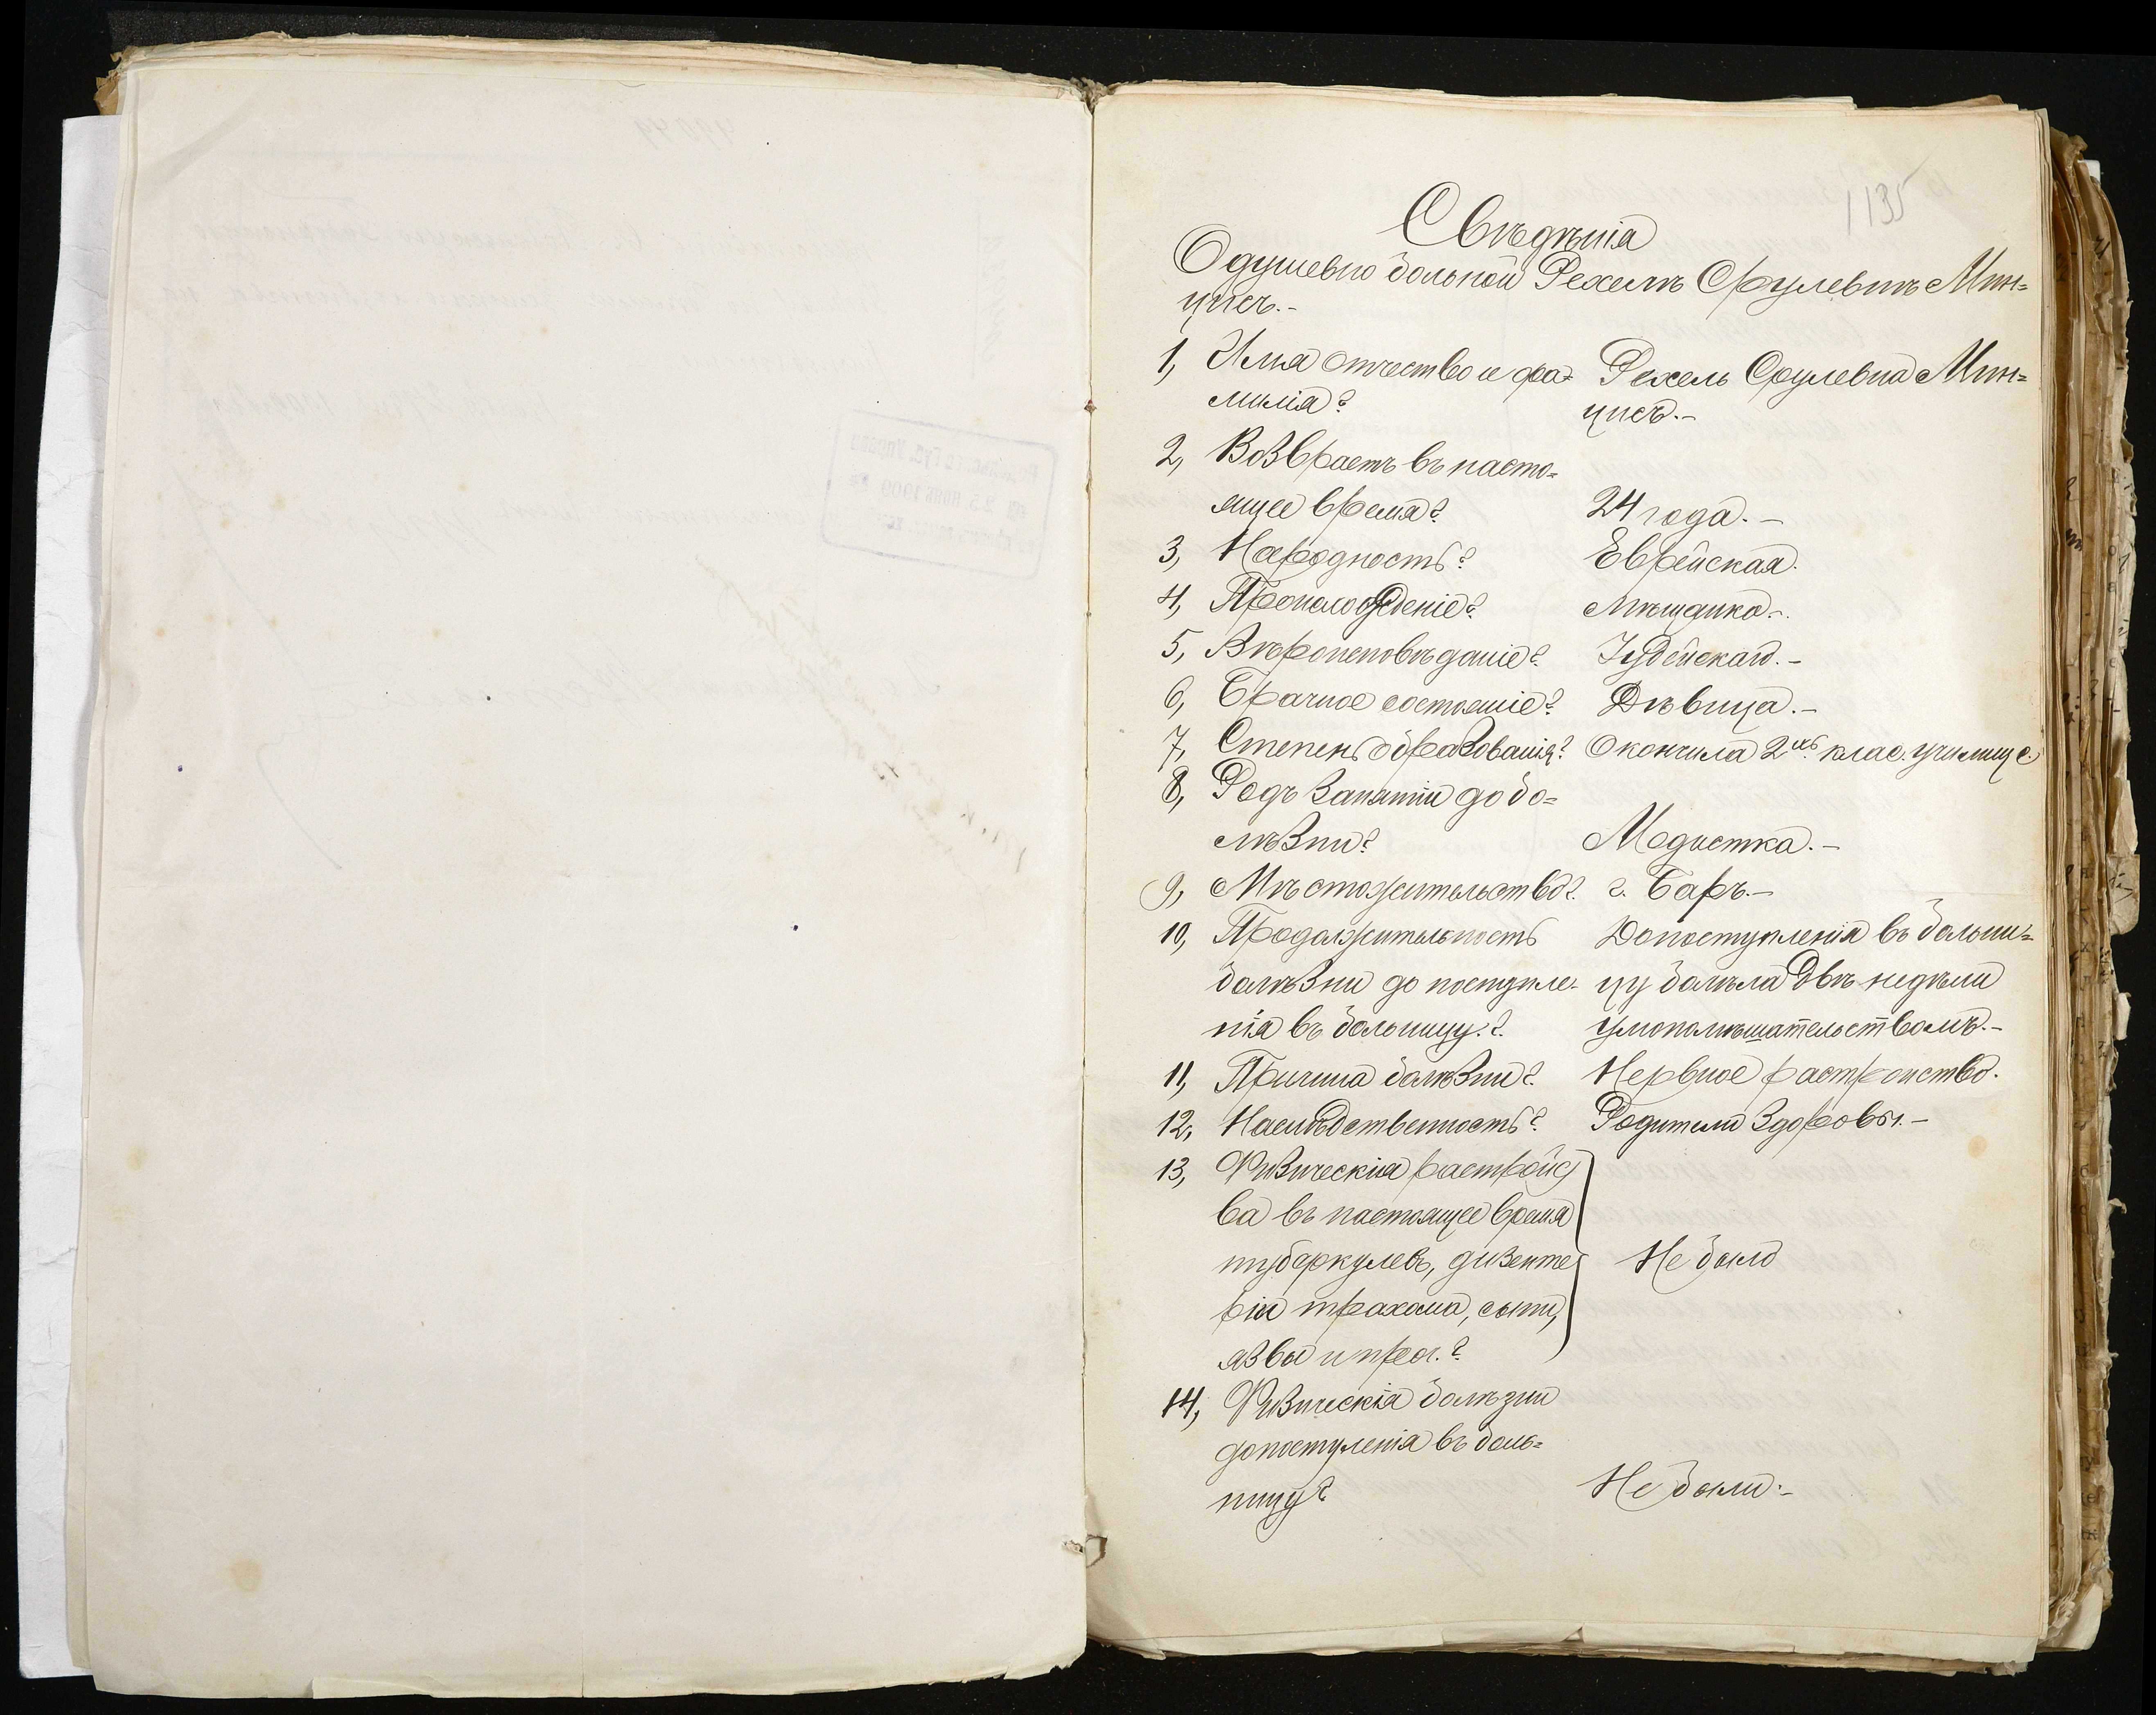 1135
Свѣдѣнія
О душевно больной Рехелѣ Срулевнѣ Мин=
цисъ.-
1, Имя отчество и фа= Рехель Срулевна Мин=
милія? цисъ.-
2, Возврастъ въ насто=
ящее время? 24 года. -
3, Народность? Еврейская.
4, Происхожденіе? Мѣщанка.-
5, Вѣроисповѣданіе? Іудейская. -
6, Брачное состояніе? Дѣвица. -
7, Степень образованія? Окончила 2хъ клас. училище.
8, Родъ занятій до бо=
лѣзни? Модистка. -
9, Мѣстожительство? г. Баръ. -
10, Продолжительность До поступленія въ больни=
болѣзни до поступле- цу болѣла двѣ недѣли
нія въ больницу? умопомѣшательствомъ. -
11, Причина болѣзни? Нервное растройство.
12, Наслѣдственность? Родители здоровы. -
13, Физическія растройс
ва въ настоящее время
туберкулезъ, дизенте Не было
рія трахома, сыпи,
язвы и проч.?
14, Физическія болѣзни
до постуленія въ боль=
ницу? Не были. -